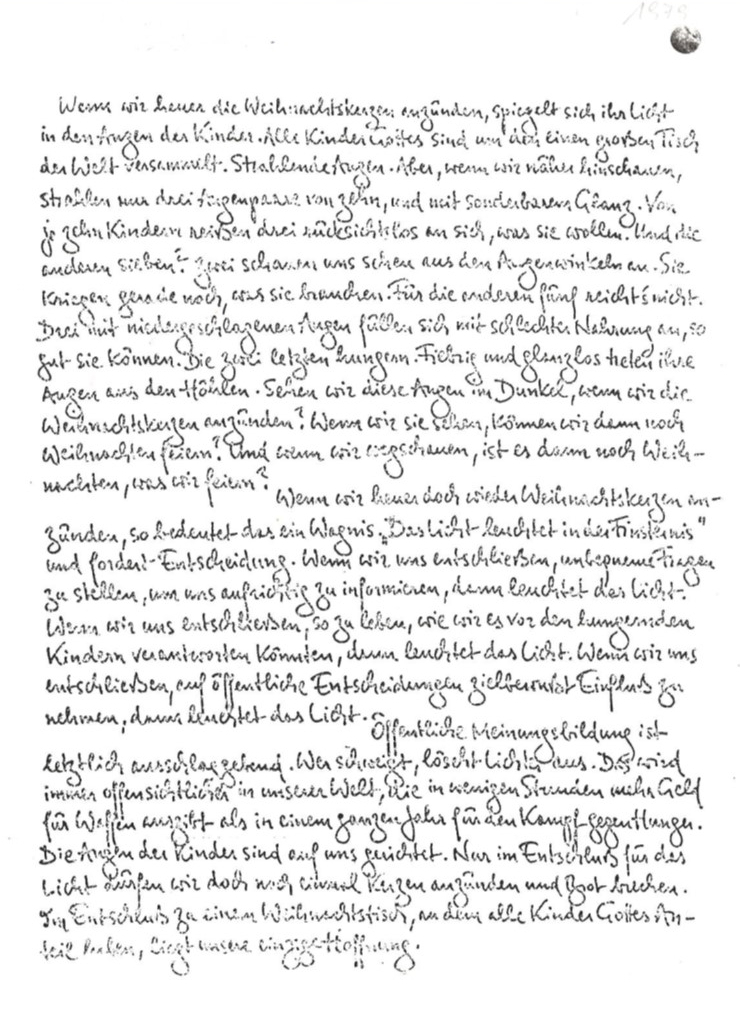 1979
Wenn wir heuer die Weihnachtskerzen anzünden, spiegelt sich ihr Licht
in den Augen der Kinder. Alle Kinder Gottes sind um den einen großen Tisch
der Welt versammelt. Strahlende Augen. Aber, wenn wir näher hinschauen,
strahlen nur drei Augenpaare von zehn, und mit sonderbarem Glanz. Von
je zehn Kindern reißen drei rücksichtslos an sich, was sie wollen. Und die
anderen sieben? Zwei schauen uns scheu aus den Augenwinkeln an. Sie
kriegen gerade noch, was sie brauchen. Für die anderen fünf reicht's nicht.
Drei mit niedergeschlagenen Augen füllen sich mit schlechter Nahrung an, so
gut sie können. Die zwei letzten hungern. Fiebrig und glanzlos treten ihre
Augen aus den Höhlen. Sehen wir diese Augen im Dunkel, wenn wir die
Weihnachtskerzen anzünden? Wenn wir sie sehen, können wir dann noch
Weihnachten feiern? Und wenn wir wegschauen, ist es dann noch Weih-
nachten, was wir feiern?
Wenn wir heuer doch wieder Weihnachtskerzen an-
zünden, so bedeutet das ein Wagnis. „Das Licht leuchtet in der Finsternis"
und fordert Entscheidung. Wenn wir uns entschließen, unbequeme Fragen
zu stellen, um uns aufrichtig zu informieren, dann leuchtet das Licht.
Wenn wir uns entschließen, so zu leben, wie wir es vor den hungernden
Kindern verantworten könnten, dann leuchtet das Licht. Wenn wir uns
entschließen, auf öffentliche Entscheidungen zielbewußt Einfluß zu
nehmen, dann leuchtet das Licht.
Öffentliche Meinungsbildung ist
letztlich ausschlaggebend. Wer schweigt, löscht Lichter aus. Das wird
immer offensichtlicher in unserer Welt, die in wenigen Stunden mehr Geld
für Waffen ausgibt als in einem ganzen Jahr für den Kampf gegen Hunger.
Die Augen der Kinder sind auf uns gerichtet. Nur im Entschluß für das
Licht dürfen wir doch noch einmal Kerzen anzünden und Brot brechen.
Im Entschluß zu einem Weihnachtstisch, an dem alle Kinder Gottes An-
teil haben, liegt unsere einzige Hoffnung.